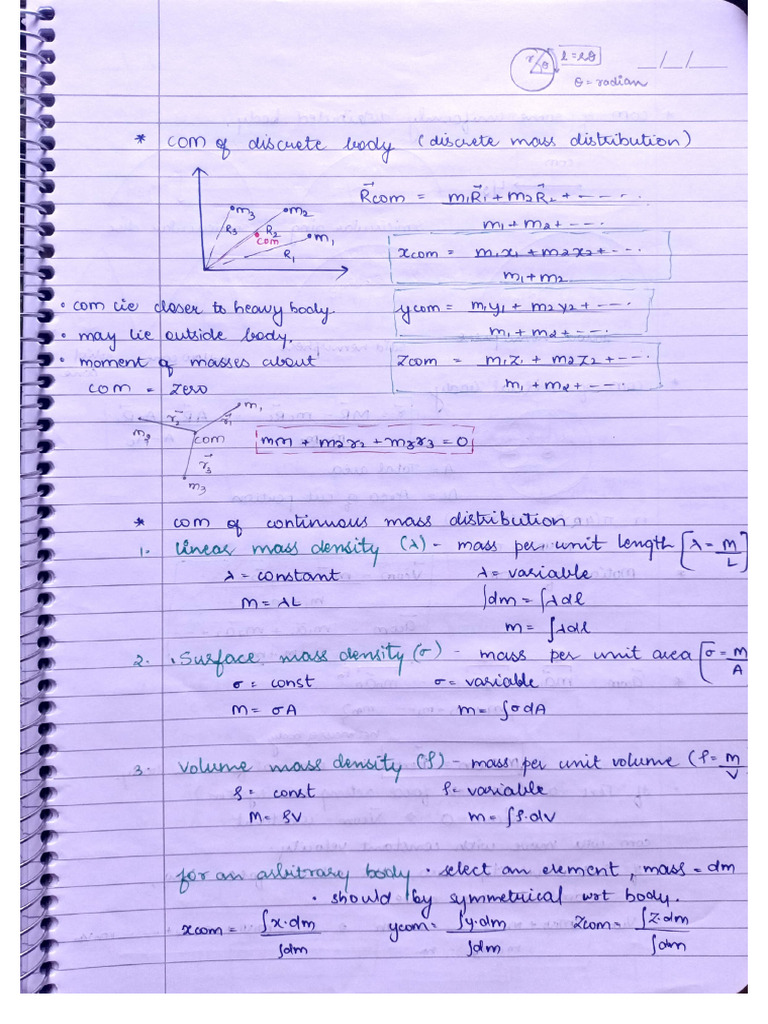 r θ l = rθ
θ = radian
__/__/__
* COM of discrete body (discrete mass distribution)
R⃗com = m₁R⃗₁ + m₂R⃗₂ + -----
m₁ + m₂ + ---.
m₃ m₂ m₁
R₃ R₂ R₁
com
xcom = m₁x₁ + m₂x₂ + ---.
m₁ + m₂
• com lie closer to heavy body.
ycom = m₁y₁ + m₂y₂ + ---.
m₁ + m₂ + ---.
• may lie outside body.
• moment of masses about
com = zero
zcom = m₁z₁ + m₂z₂ + ---.
m₁ + m₂ + ---.
m₂ r⃗₂ r⃗₁ m₁
com
r⃗₃
m₃
mr1 + m₂r₂ + m₃r₃ = 0
* com of continuous mass distribution
1. linear mass density (λ) - mass per unit length [λ = M/L]
λ = constant λ = variable
M = λL ∫dm = ∫λdl
m = ∫λdl
2. Surface mass density (σ) - mass per unit area [σ = M/A
σ = const σ = variable
M = σA m = ∫σdA
3. volume mass density (ρ) - mass per unit volume (ρ = M/V
ρ = const ρ = variable
M = ρV m = ∫ρ.dv
for an arbitrary body • select an element, mass = dm
• should by symmetrical wrt body.
xcom = ∫x.dm / ∫dm ycom = ∫y.dm / ∫dm zcom = ∫z.dm / ∫dm